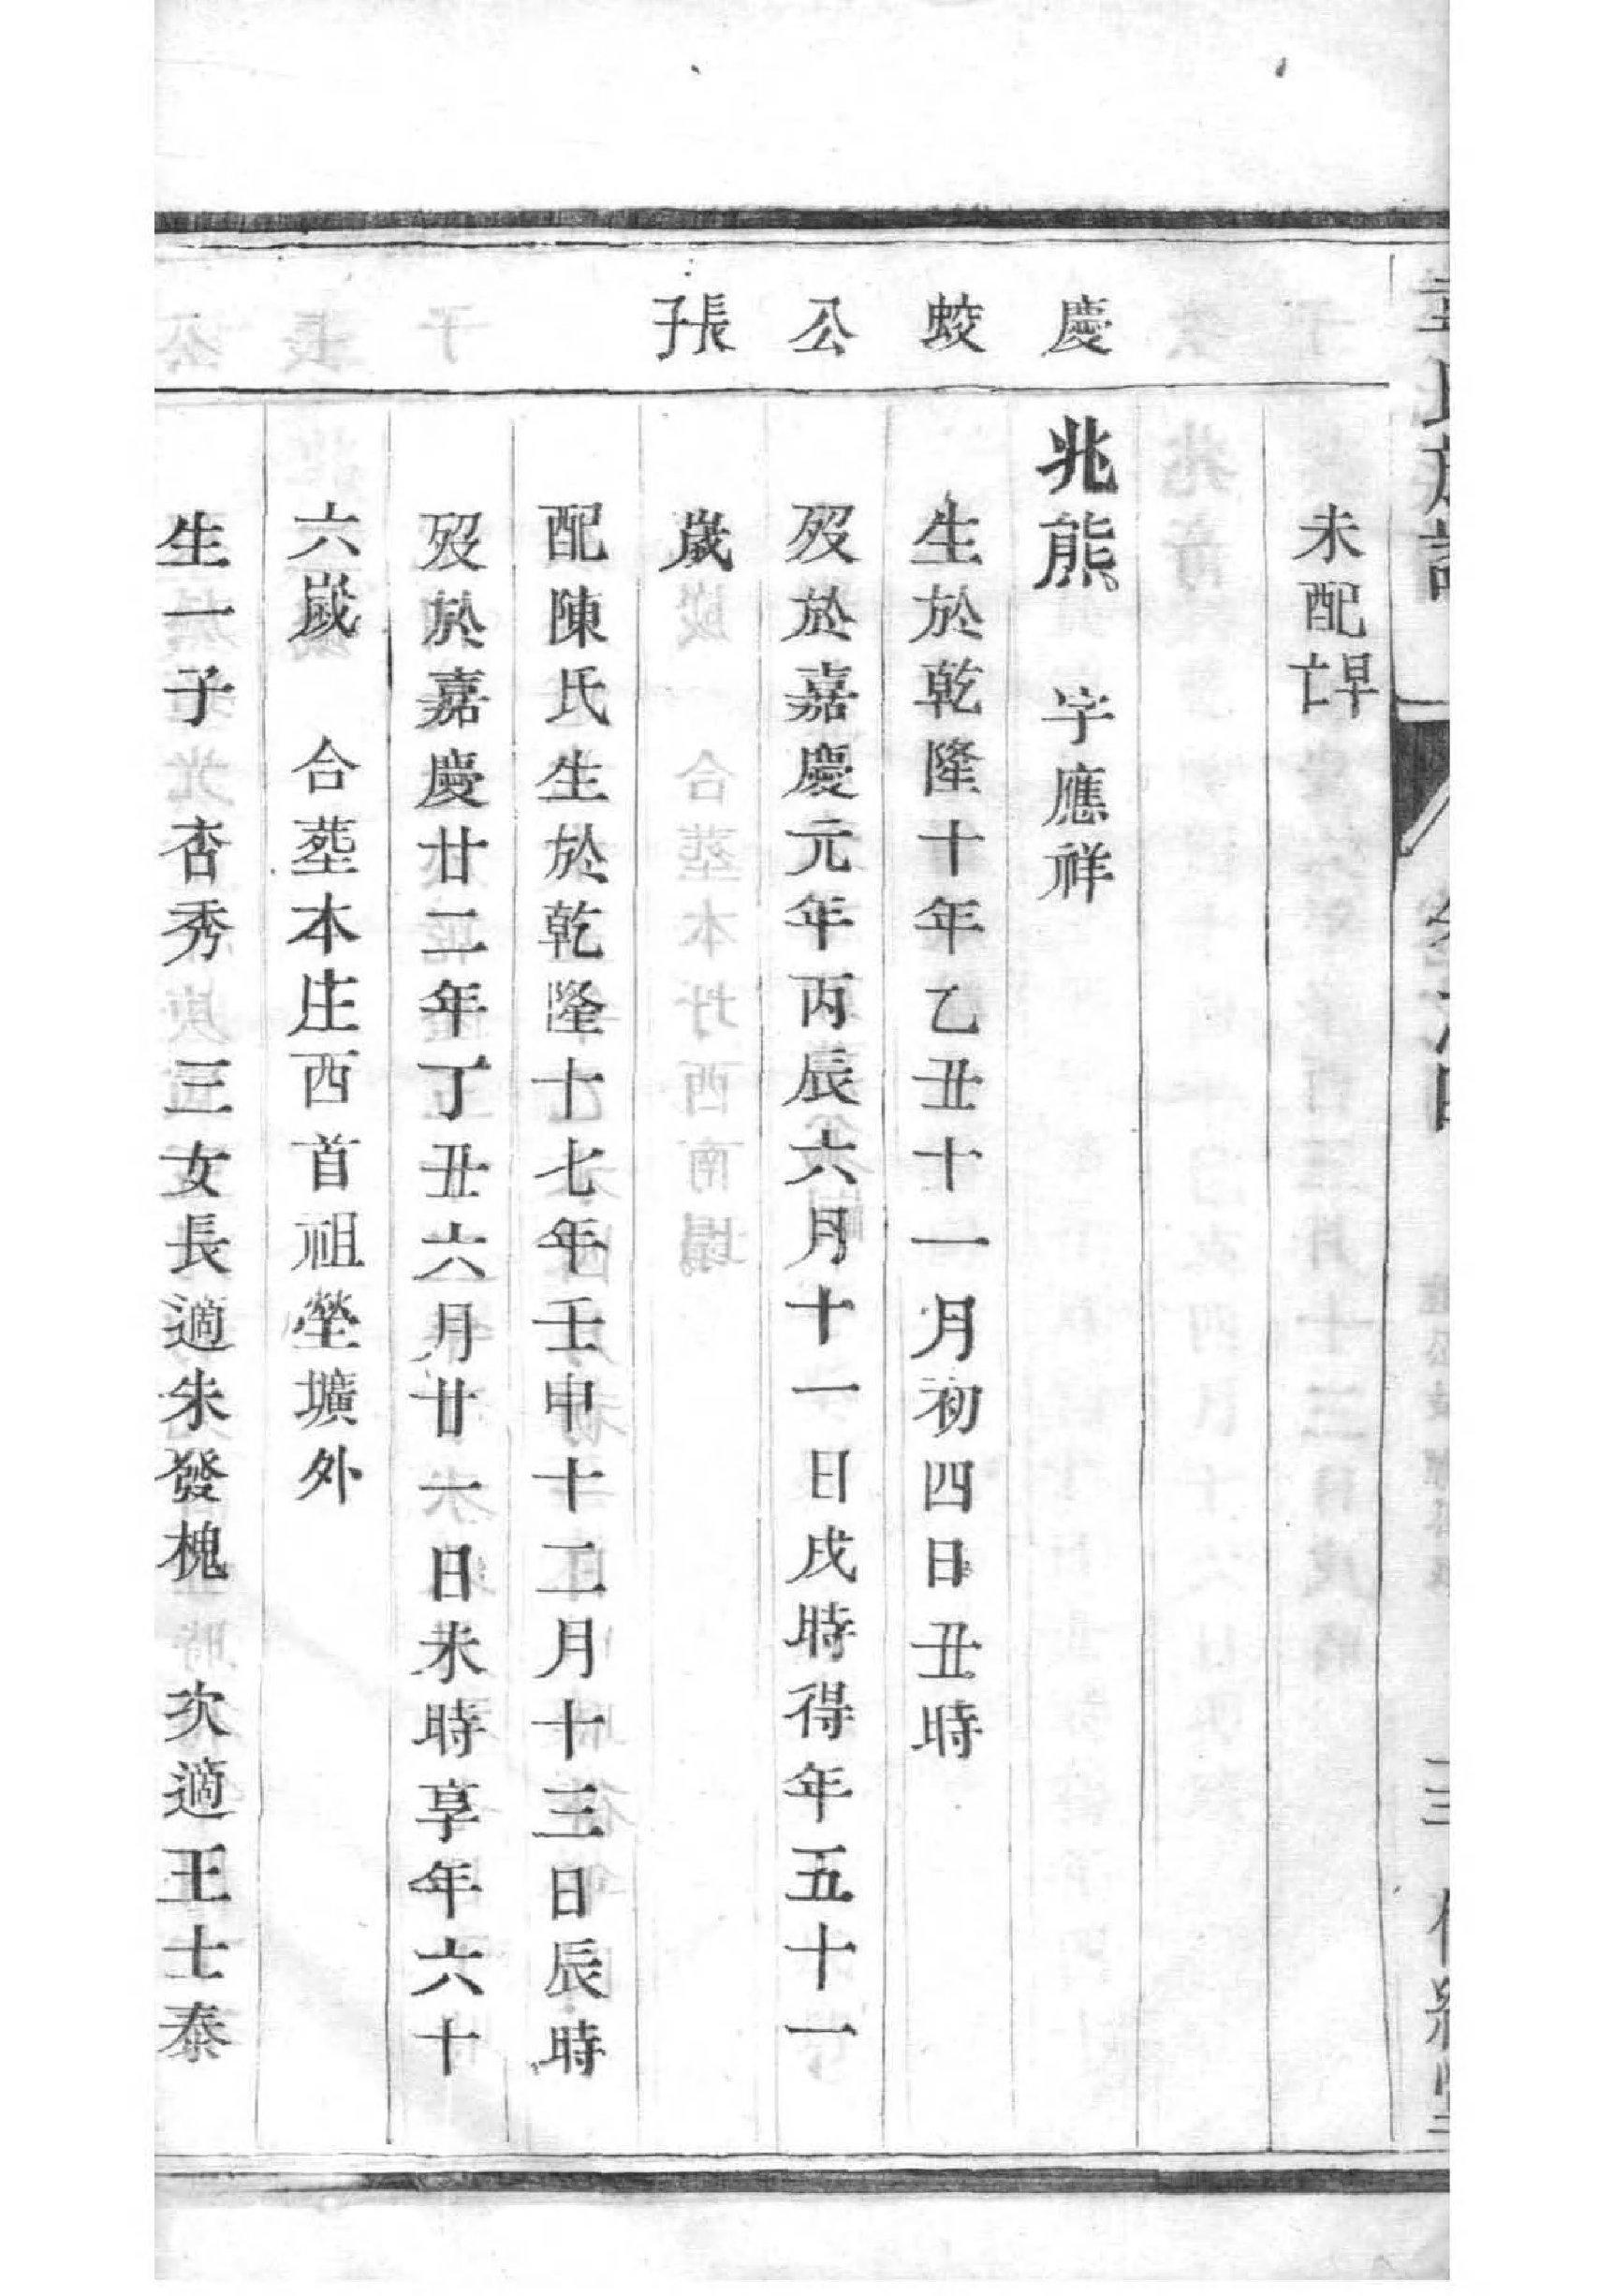 氏族譜 卷之四 三
未配早亡
慶蛟公長子
兆熊 字應祥
生於乾隆十年乙丑十一月初四日丑時
歿於嘉慶元年丙辰六月十一日戌時得年五十一
歲
配陳氏生於乾隆十七年壬申十二月十三日辰時
歿於嘉慶廿二年丁丑六月廿一日未時享年六十
六歲 合葬本庄西首祖塋壙外
生一子杏秀 三女長適朱發槐 次適王士泰